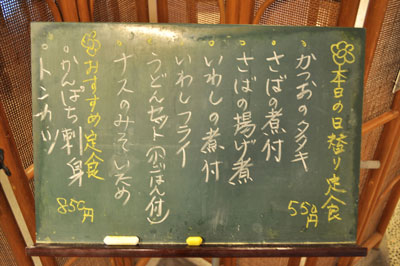 本日の日替り定食
550円
かつおのタタキ
・さばの煮付
・さばの揚げ煮
・いわしの煮付
・いわしフライ
・うどんセット(小ごはん付)
・ナスのみそいため
おすすめ定食
850円
・かんぱち刺身
・トンカツ